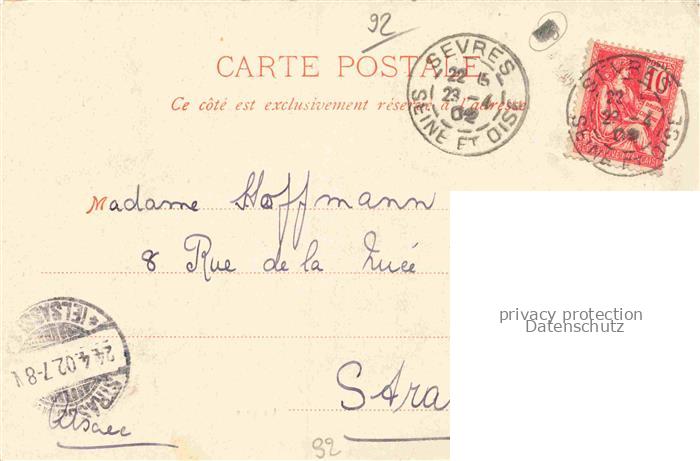 92
CARTE POSTALE
Ce côté est exclusivement réservé à l'adresse
SEVRES
22 15
23 -4
02
SEINE ET OISE
10
POSTE
SEVRES
22
23 -4
02
SEINE ET OISE
Madame Hoffmann
8 Rue de la Nuée
privacy protection
Datenschutz
24.4.02.7-8 V
STRAS
(ELSASS)
Stra
Alsace
92